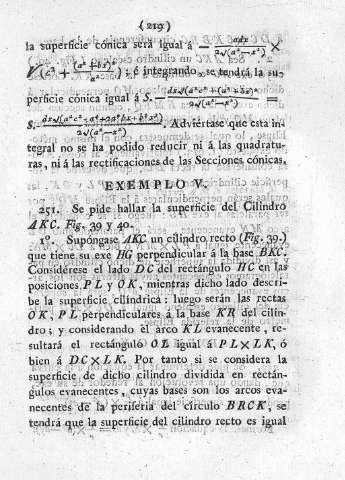 (219)
la superficie cónica será igual á — adx / 2√(a²−x²) ×
√(c² + (a²+bx)² / a²) ; é integrando, se tendrá la su-
perficie cónica igual á S. dx√(a²c²+(a²+bx)² / 2√(a²−x²) =
S. dx√(a²c²+a⁴+2a²bx+b²x²) / 2√(a²−x²). Adviértase que esta in-
tegral no se ha podido reducir ni á las quadratu-
ras, ni á las rectificaciones de las Secciones cónicas.
EXEMPLO V.
251. Se pide hallar la superficie del Cilindro
AKC. Fig. 39 y 40.
1º. Supóngase AKC un cilindro recto (Fig. 39.)
que tiene su exe HG perpendicular á la base BKC.
Considérese el lado DC del rectángulo HC en las
posiciones PL y OK, mientras dicho lado descri-
be la superficie cilíndrica: luego serán las rectas
OK, PL perpendiculares á la base KR del cilin-
dro; y considerando el arco KL evanecente, re-
sultará el rectángulo OL igual á PL×LK, ó
bien á DC×LK. Por tanto si se considera la
superficie de dicho cilindro dividida en rectán-
gulos evanecentes, cuyas bases son los arcos eva-
necentes de la periferia del círculo BRCK, se
tendrá que la superficie del cilindro recto es igual